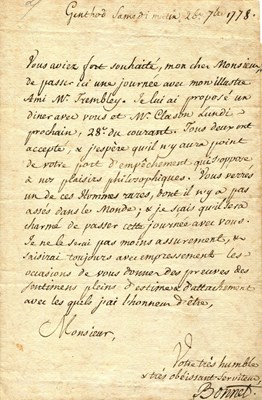 Genthod Samedi matin 26e 7bre 1778.
Vous aviez fort souhaité, mon cher Monsieur,
de passer ici une journée avec mon illustre
Ami Mr. Trembley. Je lui ai proposé un
diner avec vous et Mr. Clason Lundi
prochain, 28e du courant. Tous deux ont
accepté, & j'espère qu'il n'y aura point
de votre part d'empêchement qui s'oppose
à nos plaisirs philosophiques. Vous verrez
un de ces Hommes rares, dont il n'y a pas
assés dans le Monde, & je sais qu'il sera
charmé de passer cette journée avec vous.
Je ne le serai pas moins assurement, &
saisirai toujours avec empressement les
occasions de vous donner des preuves des
sentimens pleins d'estime & d'attachement
avec les quels j'ai l'honneur d'être,
Monsieur,
Votre très humble
& très obéissant Serviteur
Bonnet